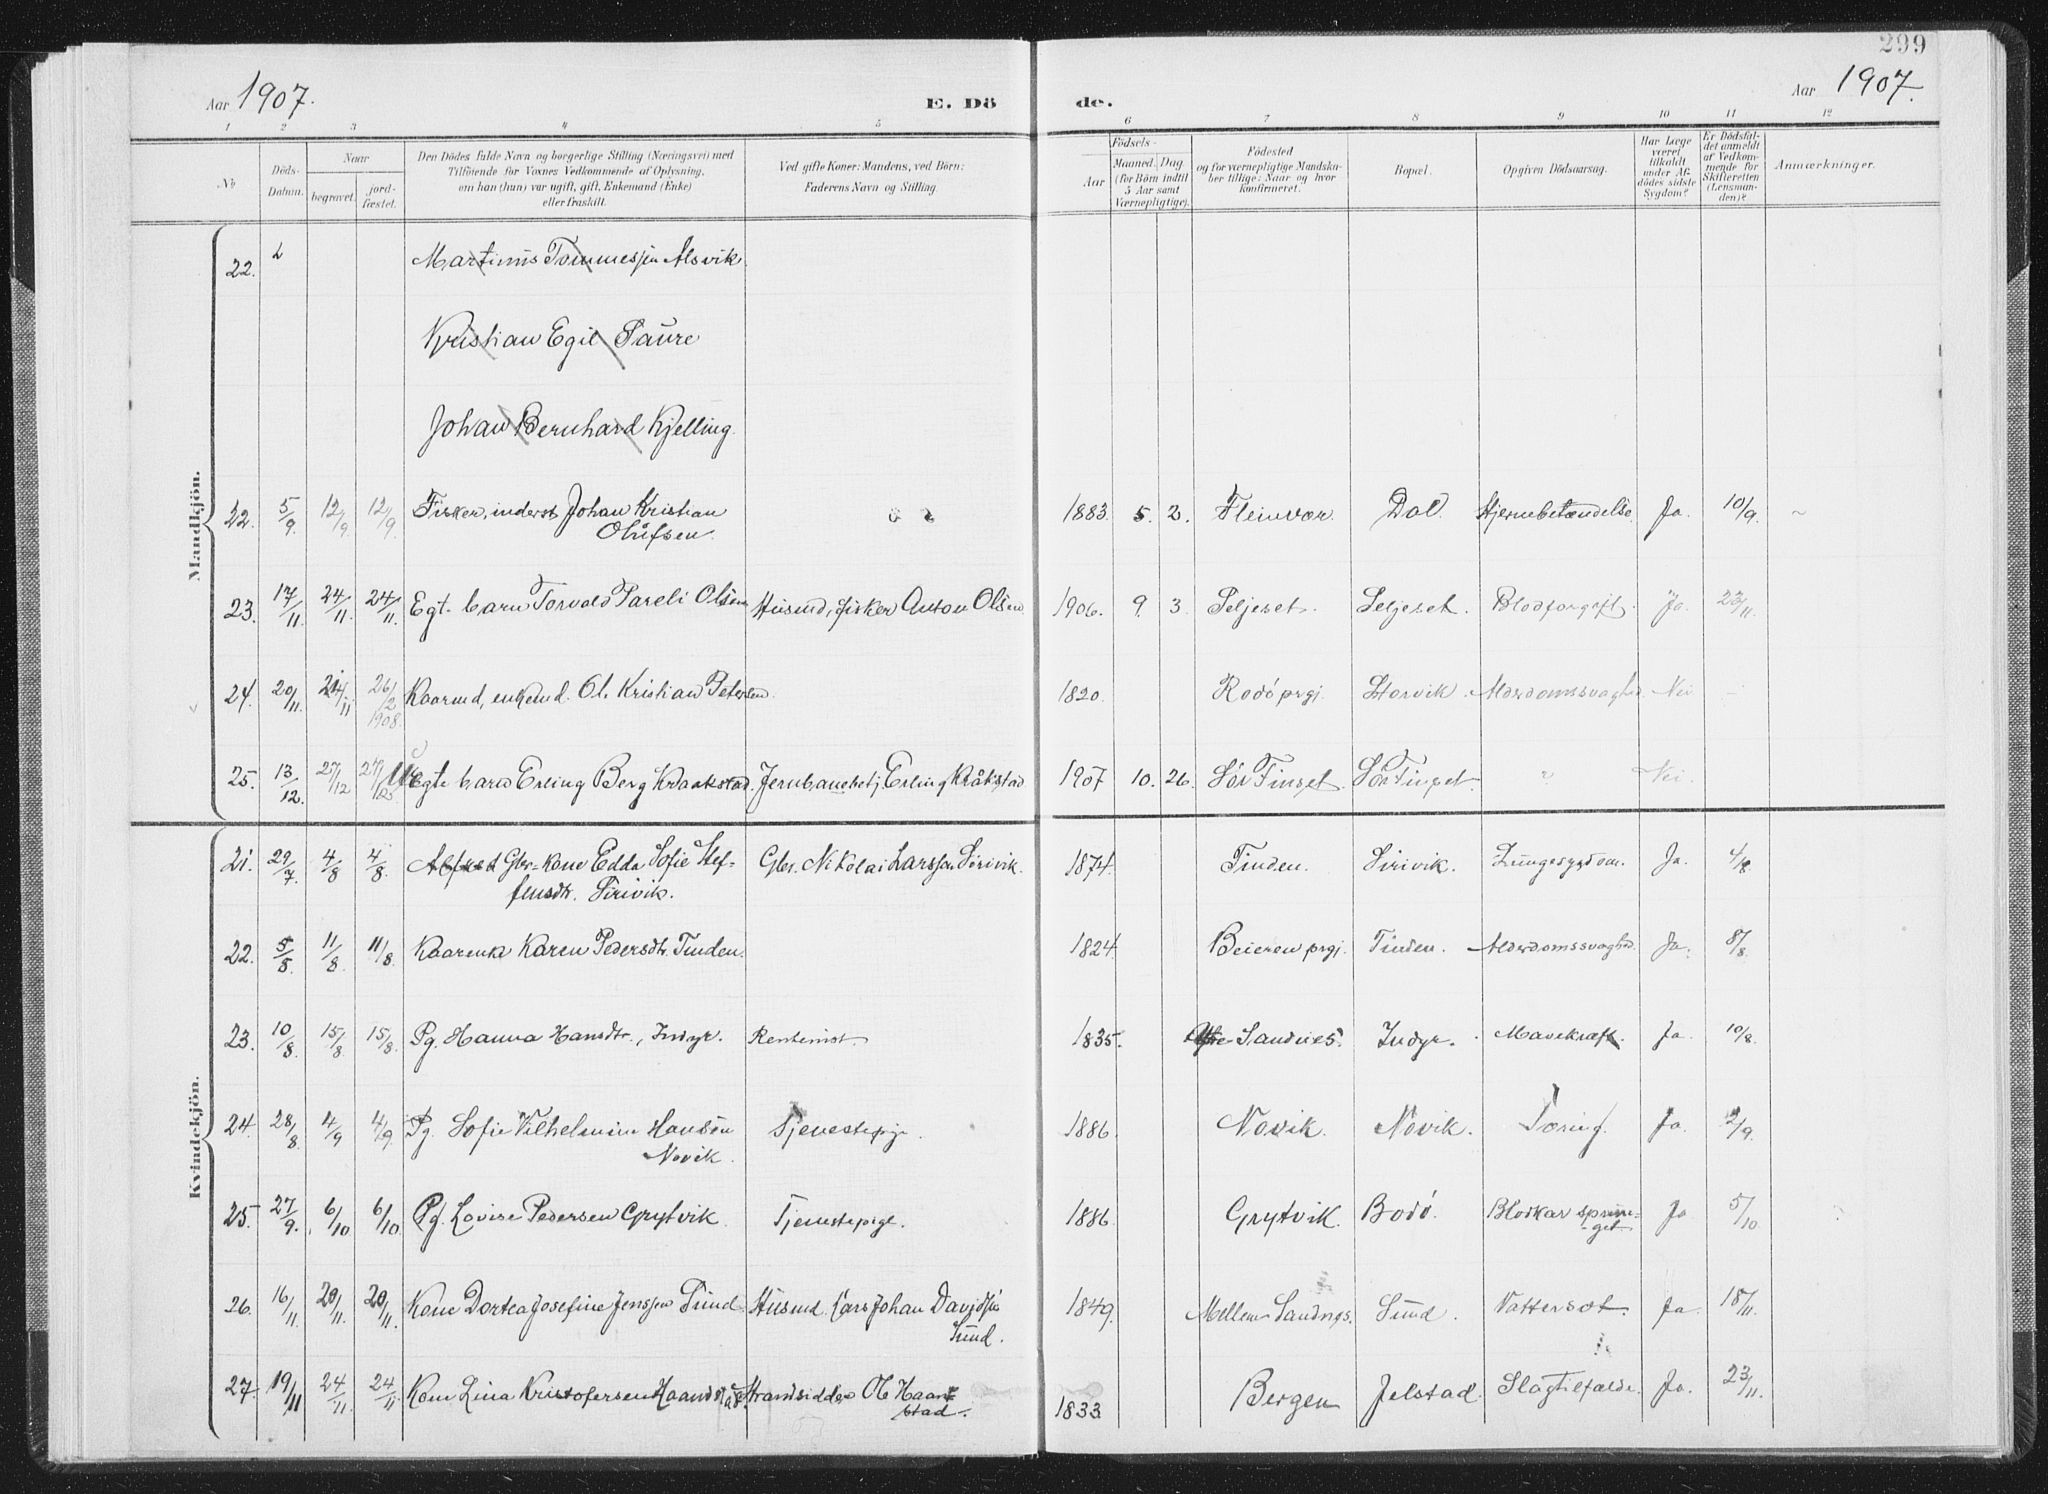 299
Aar 1907.
E. Dö
de.
Aar 1907.
1 2 3 4 5 6 7 8 9 10 11 12
No
Döds-
Datum.
Naar
begravet.
jord-
fæstet.
Den Dödes fulde Navn og borgerlige Stilling (Næringsvei) med
Tilföiende for Voxnes Vedkommende af Oplysning,
om han (hun) var ugift, gift, Enkemand (Enke)
eller fraskilt.
Ved gifte Koner: Mandens, ved Börn:
Faderens Navn og Stilling.
Födsels-
Aar
Maaned. Dag
(for Börn indtil
5 Aar samt
Værnepligtige).
Födested
og for værnepligtige Mandska-
ber tillige: Naar og hvor
konfirmeret.
Bopæl.
Opgiven Dödsaarsag.
Har Læge
været
tilkaldt
under Af-
dödes sidste
Sygdom?
Er Dödsfal-
det anmeldt
af Vedkom-
mende for
Skifteretten
(Lensman-
den)?
Anmærkninger.
Mandkjön.
22. Martinus Tommesen Alsvik
Kristian Egil Saure
Johan Bernhard Kjelling.
22. 5/9 12/9 12/9 Fisker, inderst Johan Kristian 1883. 5. 2. Fleinvær. Dal. Hjernebetændelse. Ja. 10/9.
Olufsen.
23. 17/11. 24/11. 24/11. Egt. barn Torvald Pareli Olsen Husmd, fisker Anton Olsen. 1906. 9. 3. Seljeset. Seljeset. Blodforgift. Ja. 23/11.
24. 20/11. 24/11 26/2 1908. Kaarmd, enkemd. Ol. Kristian Petersen. 1820. Rödö prgj. Storvik. Alderdomssvaghed Nei -
25. 13/12. 27/12 Egte barn Erling Berg Kraakstad. Jernbanebetj. Erling Kråkstad 1907 10. 26. Sör Tinset. Sör Tinset. " Nei.
Kvindekjön.
21. 29/7. 4/8 4/8. Gbr.-kone Edda Sofie Stef- Gbr. Nikolai Larssen Sirivik. 1874. Tinden. Sirivik. Lungesygdom. Ja. 4/8.
fensdtr. Sirivik.
22. 5/8. 11/8 11/8. Kaarenke Karen Pedersdtr. Tinden. 1824. Beieren prgj. Tinden. Alderdomssvaghed. Ja. 8/8.
23. 10/8. 15/8 15/8. Pg. Hanna Hansdtr., Indyr. Rentenist. 1835. Sandnes. Indyr. Mavekræft. Ja. 10/8.
24. 28/8. 4/9 4/9 Pg. Sofie Vilhelmine Hansen Tjenestepige. 1886. Növik. Növik. Tæring. Ja. 2/9.
Növik.
25. 27/9. 6/10 6/10 Pg. Lovise Pedersen Grytvik. Tjenestepige. 1886. Grytvik. Bodö. Blodkar sprun- Ja 5/10
-get
26. 16/11. 20/11. 20/11. Kone Dortea Josefine Jenssen Sund. Husmd. Lars Johan Davidsen 1849. Mellem Sandngs. Sund. Vattersot. Ja. 18/11.
Sund.
27. 19/11 24/11. 24/11 Kone Lina Kristofersen Haandstad. Strandsidder Ol. Haand- 1833 Bergen Jelstad. Slagtilfælde. Ja. 23/11.
stad.